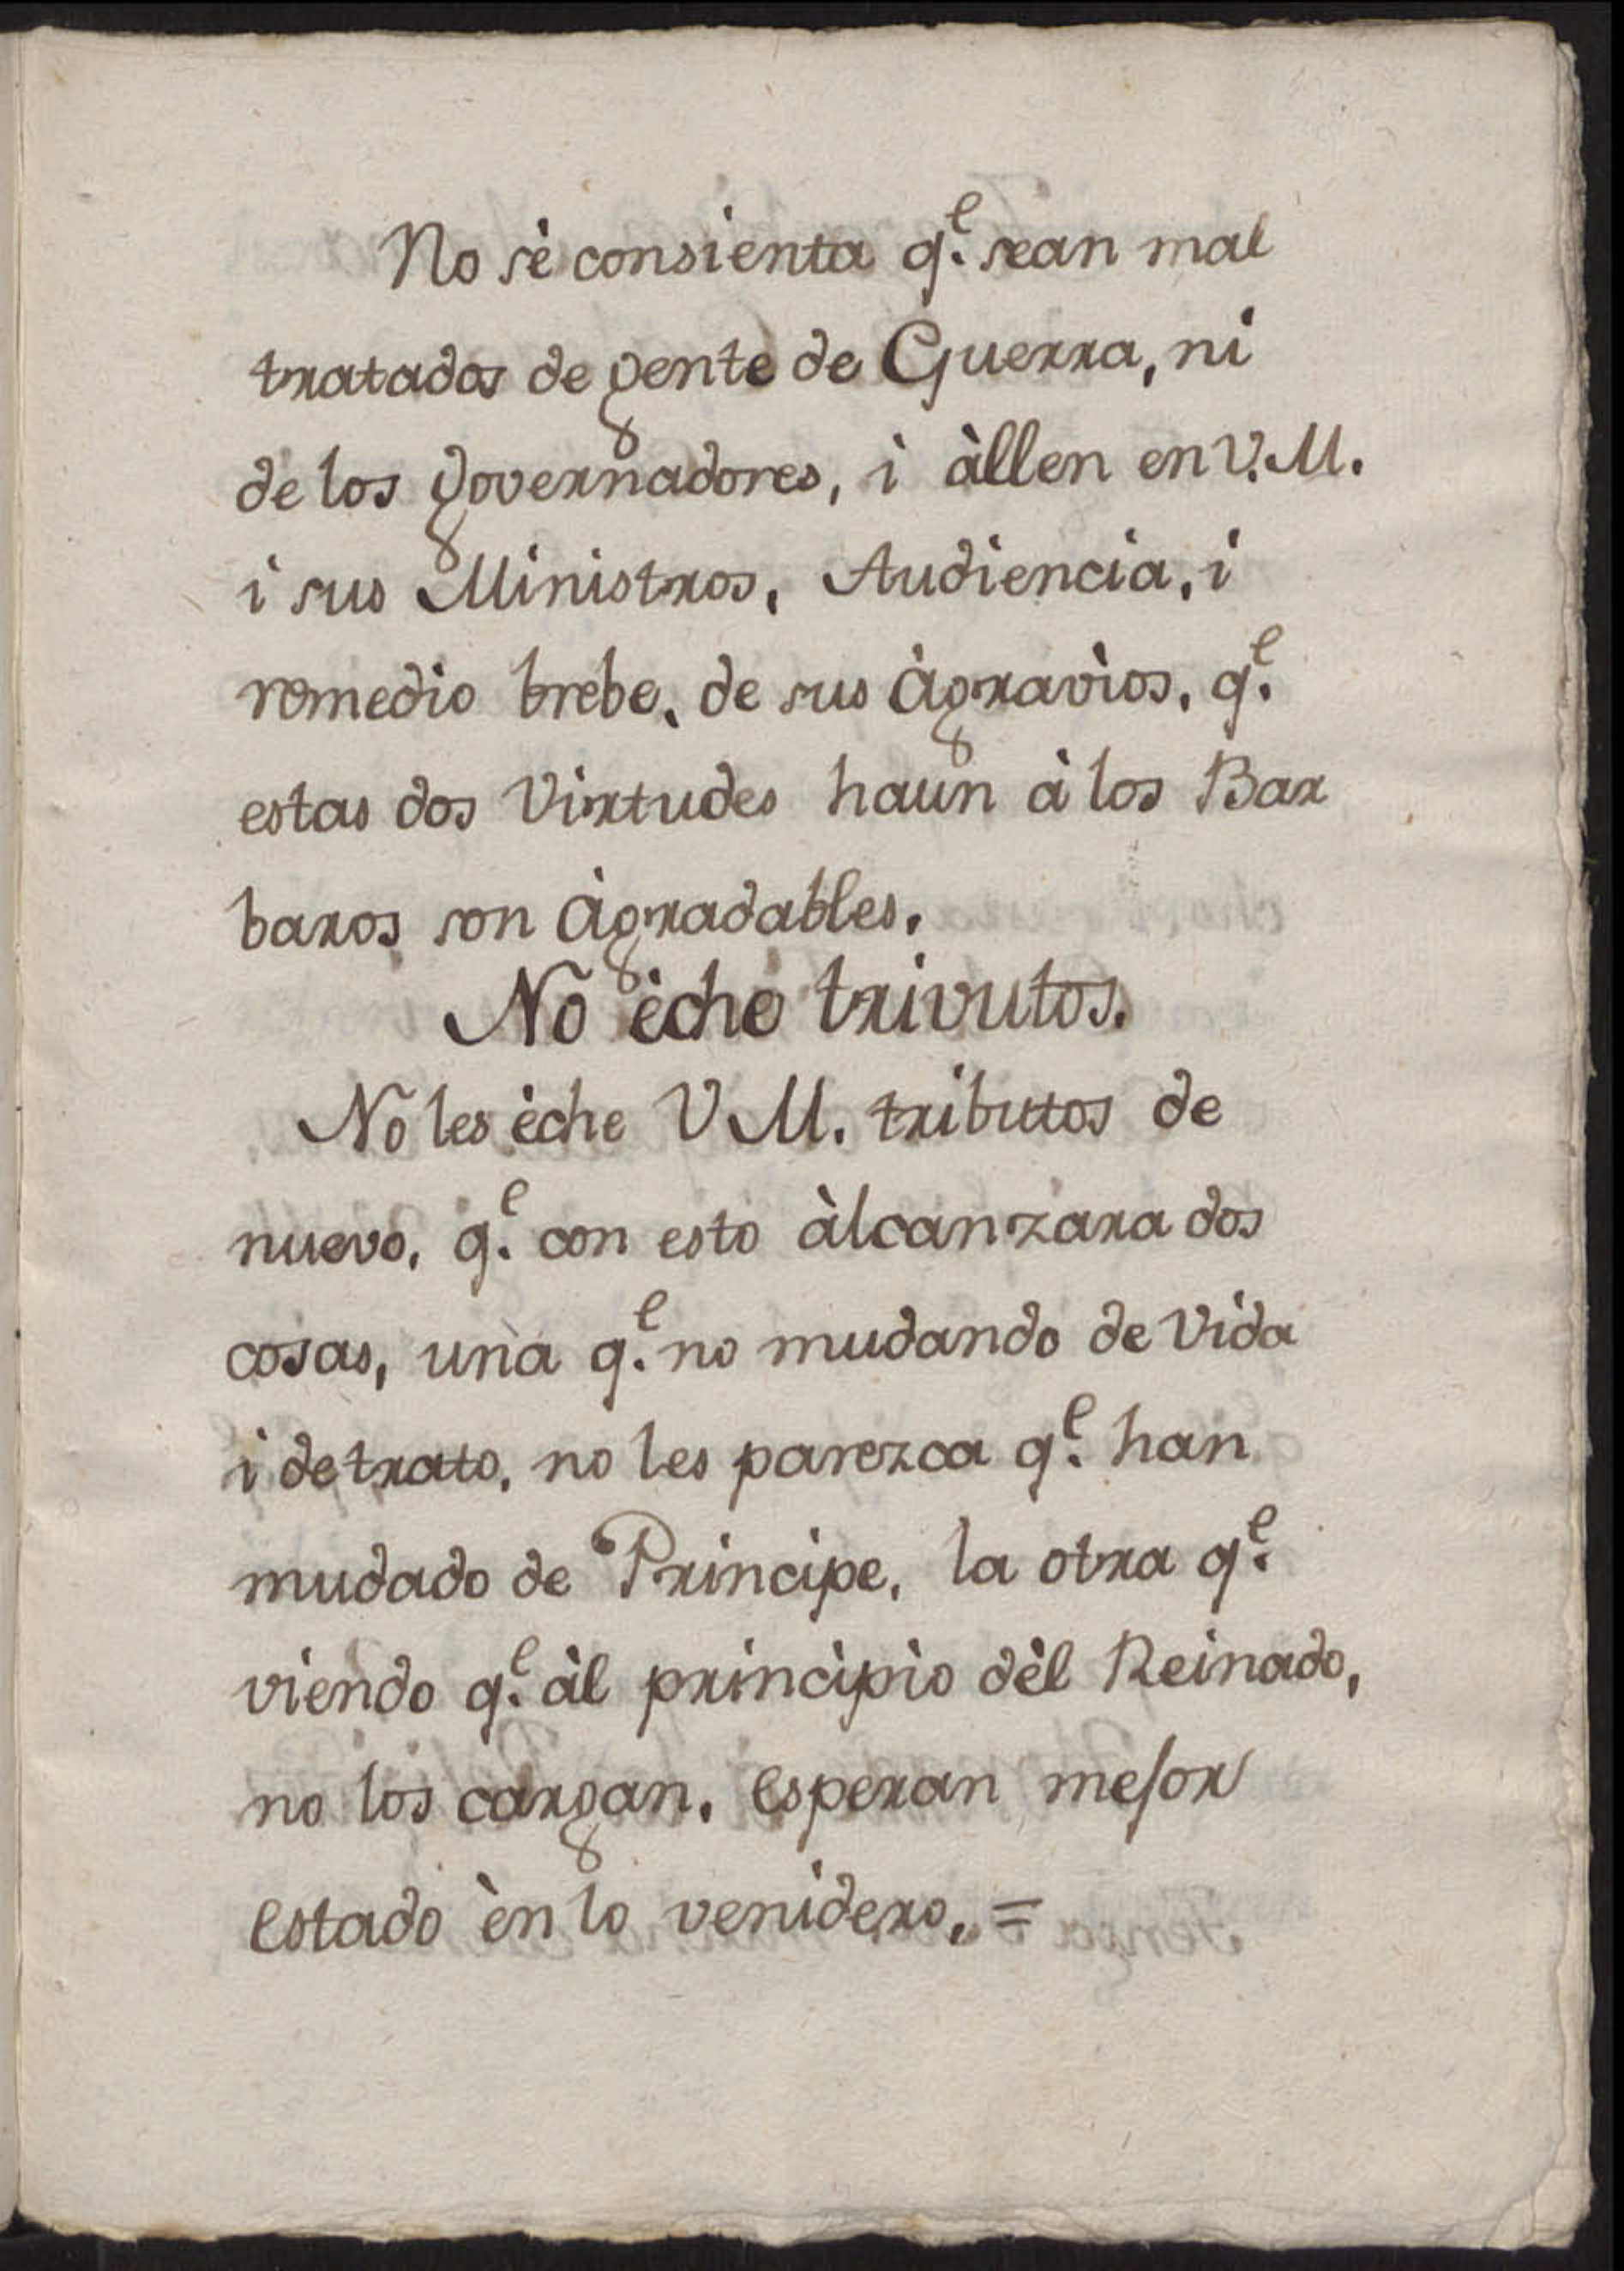 No sè consienta q.e sean mal
tratados de gente de Guerra, ni
de los governadores, i àllen en V.M.
i sus Ministros, Audiencia, i
remedio brebe, de sus àgravìos, q.e
estas dos Virtudes haun à los Bar
baros son àgradables.
No èche trivutos.
No les èche V M. tributos de
nuevo, q.e con esto àlcanzara dos
cosas, una q.e no mudando de Vida
i de trato, no les parezca q.e han
mudado de Principe, la otra q.e
viendo q.e àl principìo dèl Reinado,
no los cargan, esperan mejor
estado èn lo venidero, =